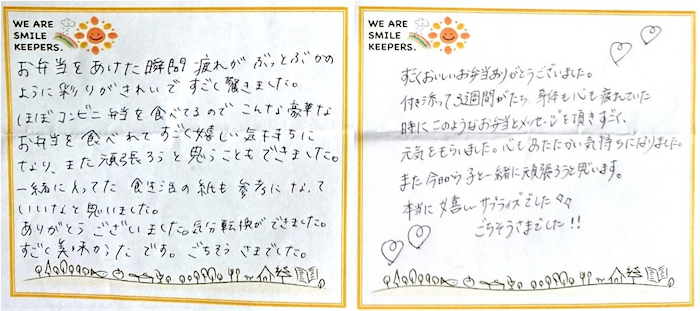 WE ARE
SMILE
KEEPERS.
お弁当をあけた瞬間 疲れが
ように彩りがきれいで すごく驚きました。
ほぼコンビニ弁当を食べてるので こんな豪華な
お弁当を食べれて すごく嬉しい気持ちに
なり、また頑張ろうと思うこともできました。
一緒に入ってた 食生活の紙も 参考になって
いいなと思いました。
ありがとうございました。気分転換ができました。
すごく美味かったです。ごちそうさまでした。
WE ARE
SMILE
KEEPERS.
すごくおいしいお弁当ありがとうございました。
付き添って3週間がたち、身体も心も疲れていた
時にこのようなお弁当とメッセージを頂きすごく、
元気をもらいました。心もあたたかい気持ちになりました。
また今日から子と一緒に頑張ろうと思います。
本当に嬉しいサプライズでした
ごちそうさまでした!!